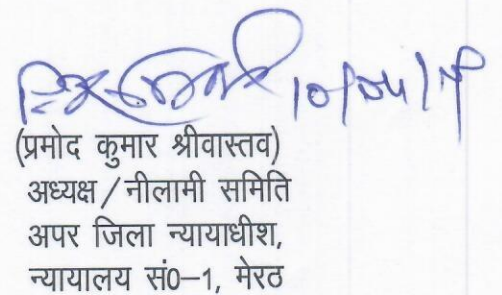 (प्रमोद कुमार श्रीवास्तव)
अध्यक्ष / नीलामी समिति
अपर जिला न्यायाधीश,
न्यायालय सं0–1, मेरठ